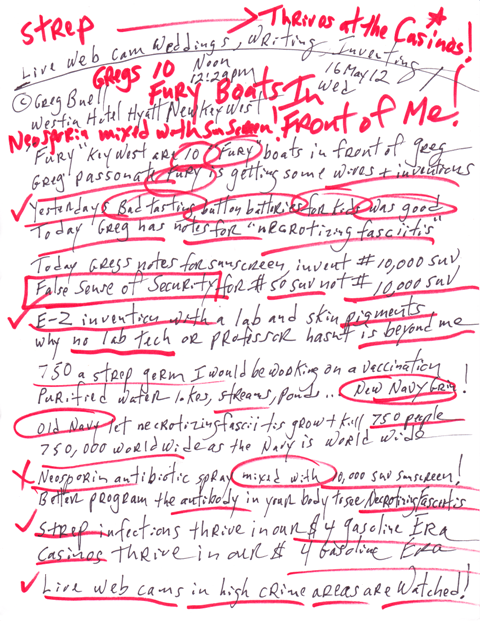 STREP → Thrives at the Casinos*!
Live Web Cam Weddings, Writing Inventing
Gregs 10 Noon 12:22pm 16 May 12 Wed
© Greg Buell Fury Boats In
Westin Hotel Hyatt New Key West Front of Me!
Neosporin mixed with sunscreen!
"Fury" Key West are 10 "Fury" boats in front of Greg
Greg passionate fury is getting some wives + inventions
✓ Yesterdays Bad tasting button batteries for kids was good
Today Greg has notes for "necrotizing fasciitis"
Today Gregs notes for sunscreen, invent # 10,000 suv
False Sense of Security for # 50 suv not # 10,000 suv
✓ E-Z invention with a lab and skin pigments
why no lab tech or professor hasnt is beyond me
750 a strep germ I would be working on a vaccination
Purified water lakes, streams, ponds... New Navy Grin!
Old Navy let necrotizing fasciitis growth kill 750 people
750,000 world wide as the Navy is world wide
x Neosporin antibiotic spray mixed with 10,000 suv sunscreen!
Better program the antibody in your body to see Necrotizing Fasciitis
✓ Strep infections thrive in our $4 gasoline Era
Casinos thrive in our $4 Gasoline Era
✓ Live web cams in high crime areas are watched!